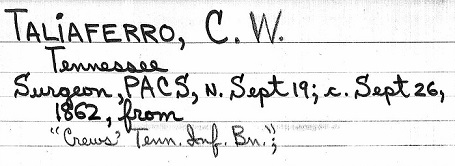 TALIAFERRO, C. W.
Tennessee
Surgeon, PACS, N. Sept 19; c. Sept 26,
1862, from
"Crews' Tenn. Inf. Bn.";